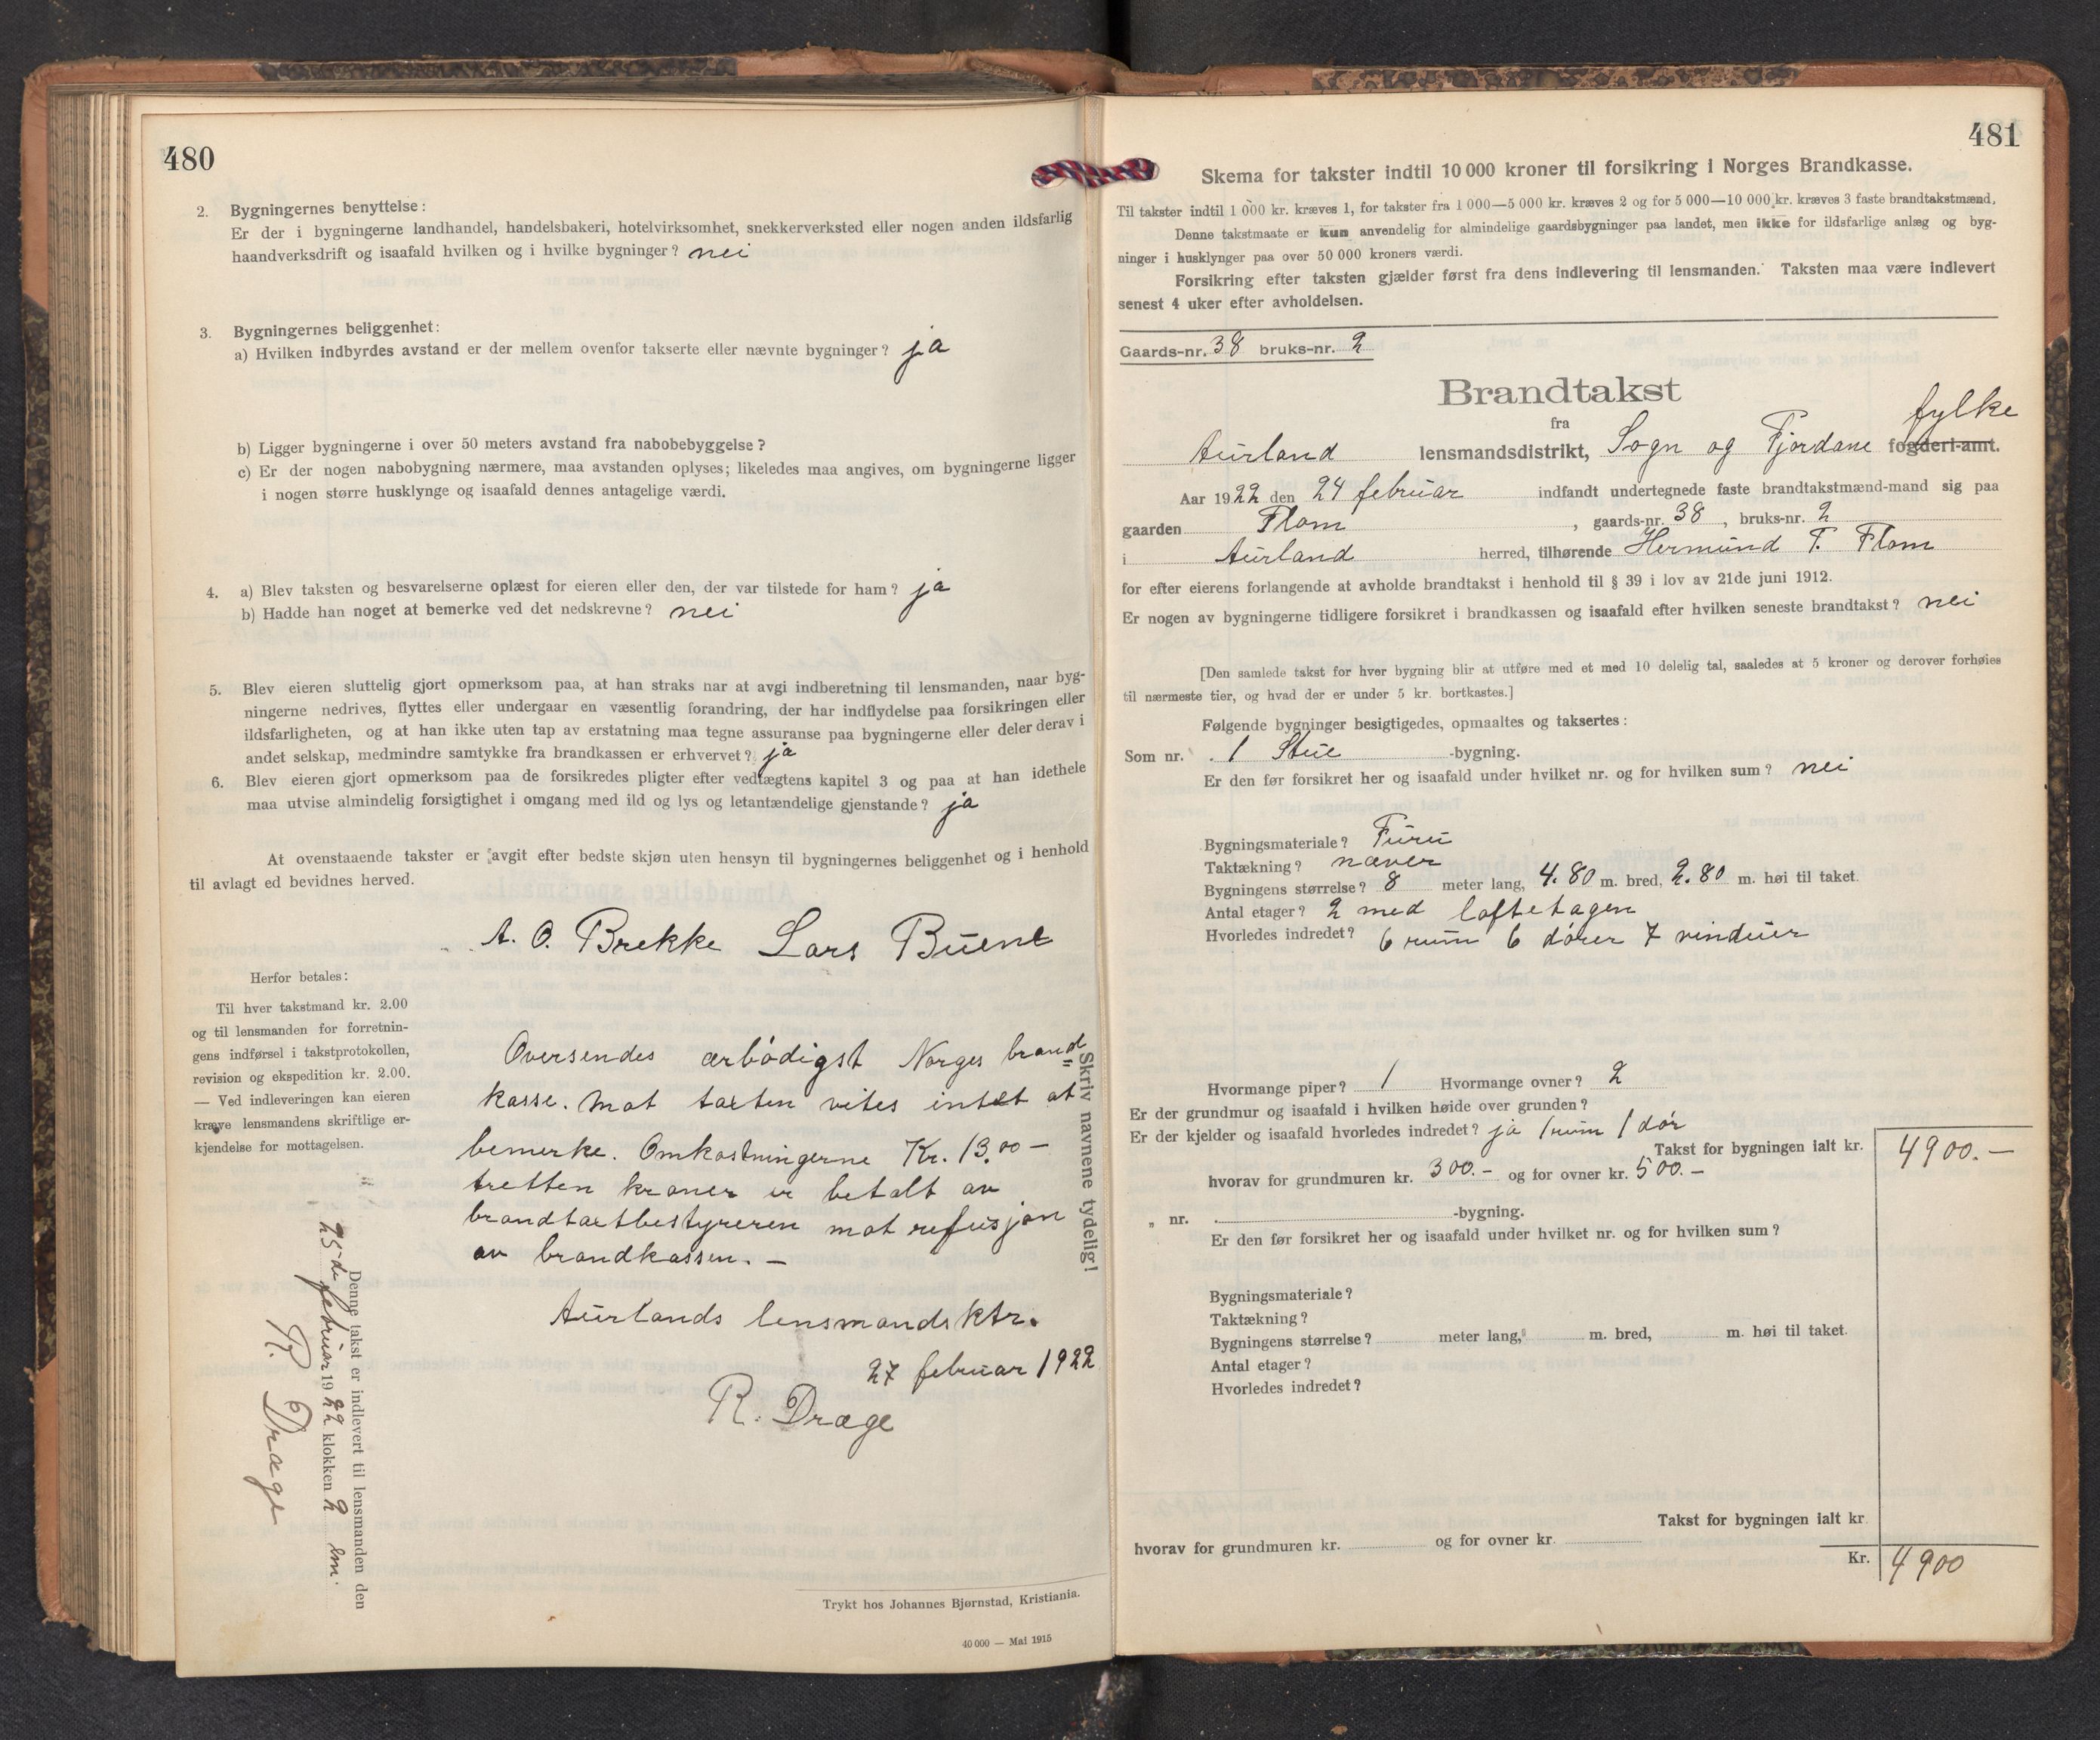 480
2. Bygningernes benyttelse:
Er der i bygningerne landhandel, handelsbakeri, hotelvirksomhet, snekkerverksted eller nogen anden ildsfarlig
haandverksdrift og isaafald hvilken og i hvilke bygninger? nei
3. Bygningernes beliggenhet:
a) Hvilken indbyrdes avstand er der mellem ovenfor takserte eller nævnte bygninger? ja
b) Ligger bygningerne i over 50 meters avstand fra nabobebyggelse?
c) Er der nogen nabobygning nærmere, maa avstanden oplyses; likeledes maa angives, om bygningerne ligger
i nogen større husklynge og isaafald dennes antagelige værdi.
4. a) Blev taksten og besvarelserne oplæst for eieren eller den, der var tilstede for ham? ja
b) Hadde han noget at bemerke ved det nedskrevne? nei
5. Blev eieren sluttelig gjort opmerksom paa, at han straks har at avgi indberetning til lensmanden, naar byg-
ningerne nedrives, flyttes eller undergaar en væsentlig forandring, der har indflydelse paa forsikringen eller
ildsfarligheten, og at han ikke uten tap av erstatning maa tegne assuranse paa bygningerne eller deler derav i
andet selskap, medmindre samtykke fra brandkassen er erhvervet? ja
6. Blev eieren gjort opmerksom paa de forsikredes pligter efter vedtægtens kapitel 3 og paa at han idethele
maa utvise almindelig forsigtighet i omgang med ild og lys og letantændelige gjenstande? ja
At ovenstaaende takster er avgit efter bedste skjøn uten hensyn til bygningernes beliggenhet og i henhold
til avlagt ed bevidnes herved.
A. O. Brekke Lars Buene
Herfor betales:
Til hver takstmand kr. 2.00
og til lensmanden for forretnin-
gens indførsel i takstprotokollen,
revision og ekspedition kr. 2.00.
— Ved indleveringen kan eieren
kræve lensmandens skriftlige er-
kjendelse for mottagelsen.
Oversendes ærbødigst Norges brand=
kasse. Mot taxten vites intet at
bemerke. Omkostningerne Kr. 13.00 —
tretten kroner er betalt av
brandtaxtbestyreren mot refusjon
av brandkassen. —
Aurlands lensmandsktr.
27 februar 1922
R. Dræge
Skriv navnene tydelig!
Denne takst er indlevert til lensmanden den
25-de februar 1922 klokken 2 em.
R. Dræge
Trykt hos Johannes Bjørnstad, Kristiania.
40 000 — Mai 1915
481
Skema for takster indtil 10 000 kroner til forsikring i Norges Brandkasse.
Til takster indtil 1 000 kr. kræves 1, for takster fra 1 000—5 000 kr. kræves 2 og for 5 000—10 000 kr. kræves 3 faste brandtakstmænd.
Denne takstmaate er kun anvendelig for almindelige gaardsbygninger paa landet, men ikke for ildsfarlige anlæg og byg-
ninger i husklynger paa over 50 000 kroners værdi.
Forsikring efter taksten gjælder først fra dens indlevering til lensmanden. Taksten maa være indlevert
senest 4 uker efter avholdelsen.
Gaards-nr. 38 bruks-nr. 2
Brandtakst
fra
fylke
Aurland lensmandsdistrikt, Sogn og Fjordane fogderi-amt.
Aar 1922 den 24 februar indfandt undertegnede faste brandtakstmænd-mand sig paa
gaarden Flom, gaards-nr. 38, bruks-nr. 2
i Aurland herred, tilhørende Hermund T. Flom
for efter eierens forlangende at avholde brandtakst i henhold til § 39 i lov av 21de juni 1912.
Er nogen av bygningerne tidligere forsikret i brandkassen og isaafald efter hvilken seneste brandtakst? nei
[Den samlede takst for hver bygning blir at utføre med et med 10 delelig tal, saaledes at 5 kroner og derover forhøies
til nærmeste tier, og hvad der er under 5 kr. bortkastes.]
Følgende bygninger besigtigedes, opmaaltes og taksertes:
Som nr. 1 Stue -bygning.
Er den før forsikret her og isaafald under hvilket nr. og for hvilken sum? nei
Bygningsmateriale? Furu
Taktækning? næver
Bygningens størrelse? 8 meter lang, 4.80 m. bred, 2.80 m. høi til taket.
Antal etager? 2 med loftetagen
Hvorledes indredet? 6 rum 6 dører 7 vinduer
Hvormange piper? 1 Hvormange ovner? 2
Er der grundmur og isaafald i hvilken høide over grunden?
Er der kjelder og isaafald hvorledes indredet? ja 1 rum 1 dør
Takst for bygningen ialt kr. 4900.—
hvorav for grundmuren kr. 300.— og for ovner kr. 500.—
„ nr. -bygning.
Er den før forsikret her og isaafald under hvilket nr. og for hvilken sum?
Bygningsmateriale?
Taktækning?
Bygningens størrelse? meter lang, m. bred, m. høi til taket.
Antal etager?
Hvorledes indredet?
Takst for bygningen ialt kr.
hvorav for grundmuren kr. og for ovner kr.
Kr. 4900